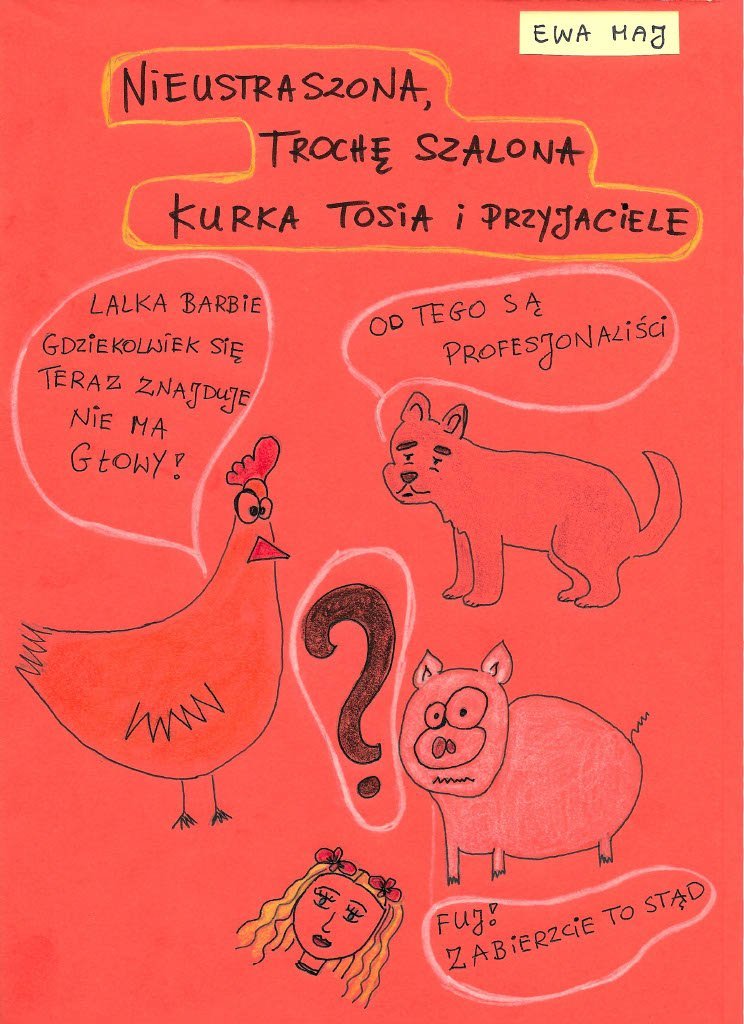 EWA MAJ
NIEUSTRASZONA,
TROCHĘ SZALONA
KURKA TOSIA i PRZYJACIELE
LALKA BARBIE
GDZIEKOLWIEK SIĘ
TERAZ ZNAJDUJE
NIE MA
GŁOWY!
OD TEGO SĄ
PROFESJONALIŚCI
?
FUJ!
ZABIERZCIE TO STĄD